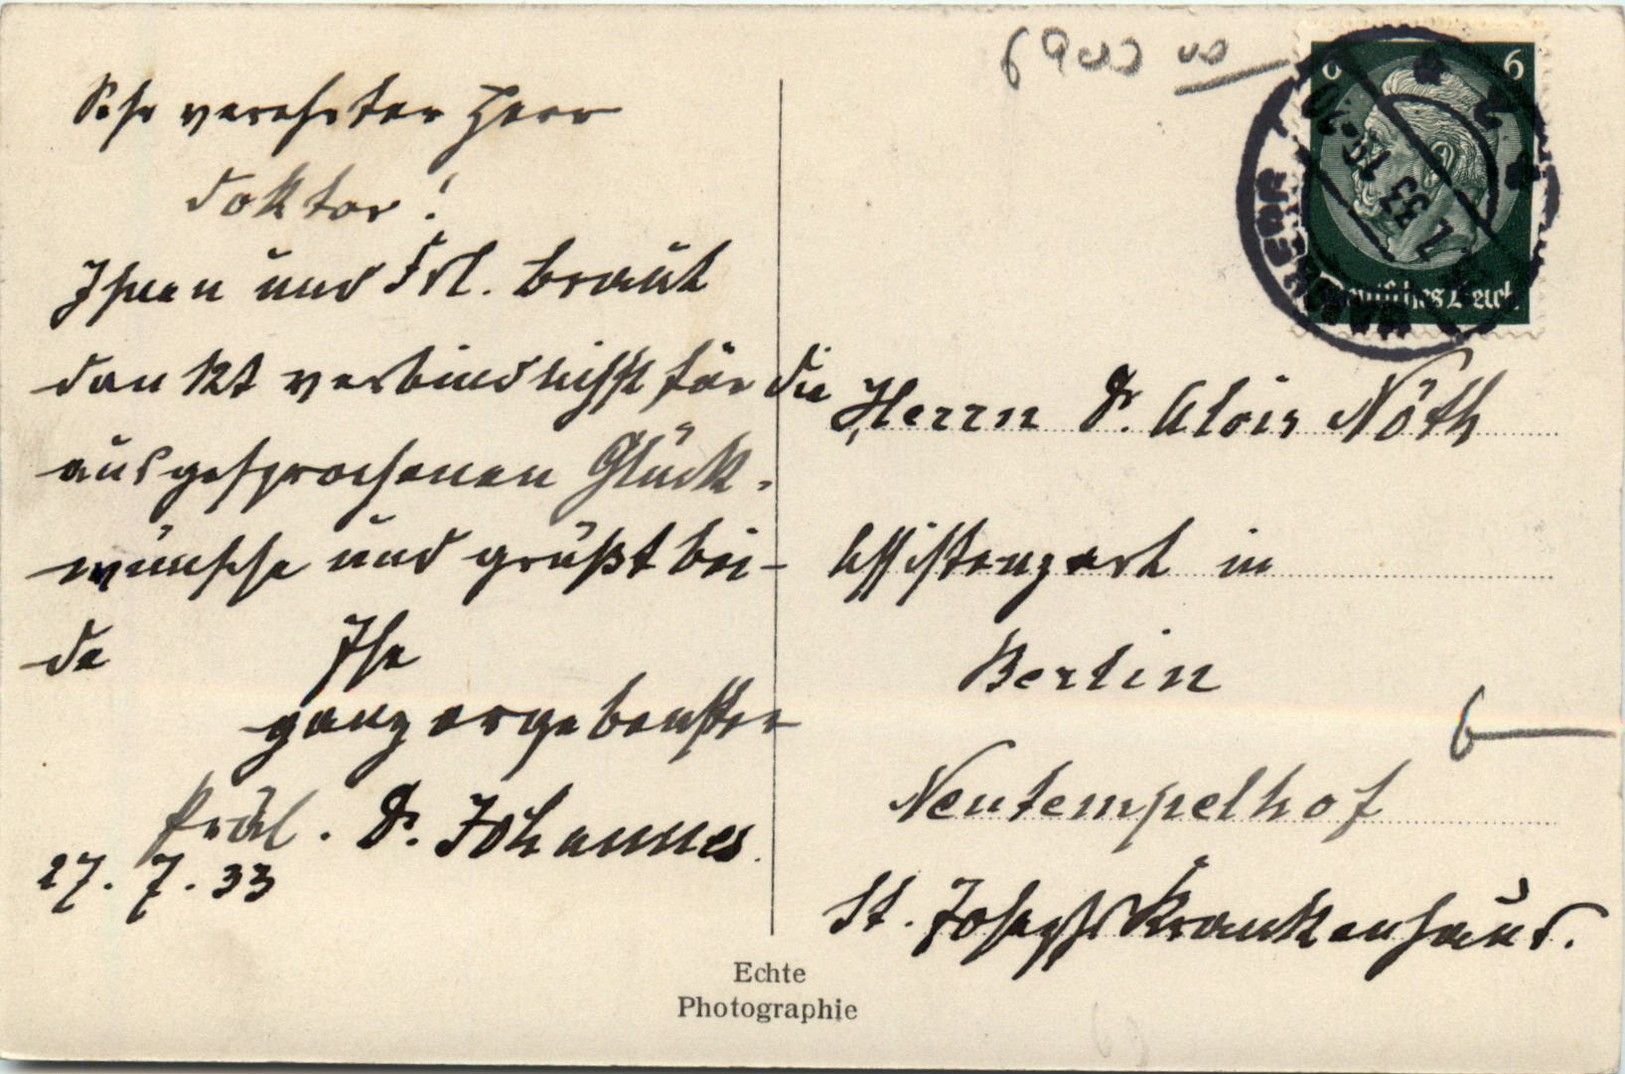 Sehr verehrter Herr
Doktor!
Ihnen und Frl. Braut
dankt verbindlichst für die
ausgesprochenen Glück-
wünsche und grüßt bei-
de Ihr
ganz ergebenster
Präl. Dr. Johannes
27. 7. 33
6
Deutsches Reich
33 19-20
Herrn Dr. Alois Nöth
Assistenzarzt in
Berlin
Neutempelhof
St. Josephs Krankenhaus.
6
Echte
Photographie